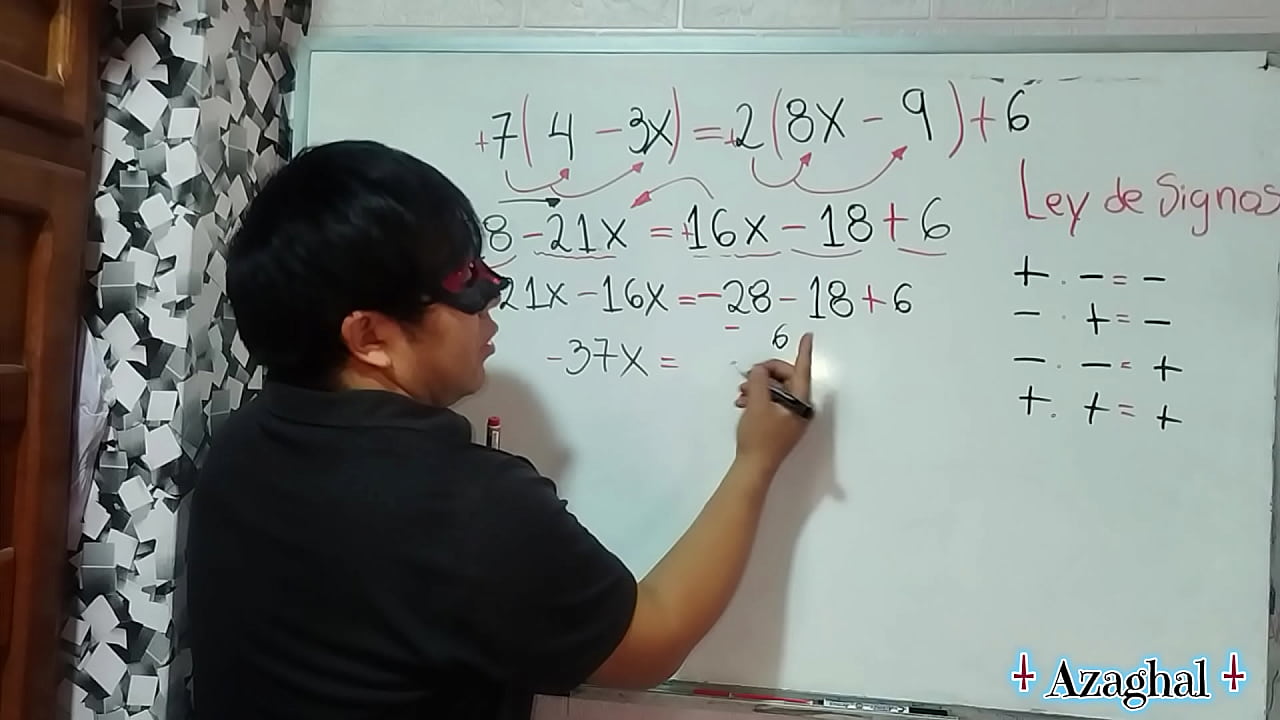 +7(4 - 3x) = +2(8x - 9) + 6
8 - 21x = +16x - 18 + 6
21x - 16x = -28 - 18 + 6
- 6
-37x =
Ley de Signos
+ . - = -
- . + = -
- . - = +
+ . + = +
Azaghal